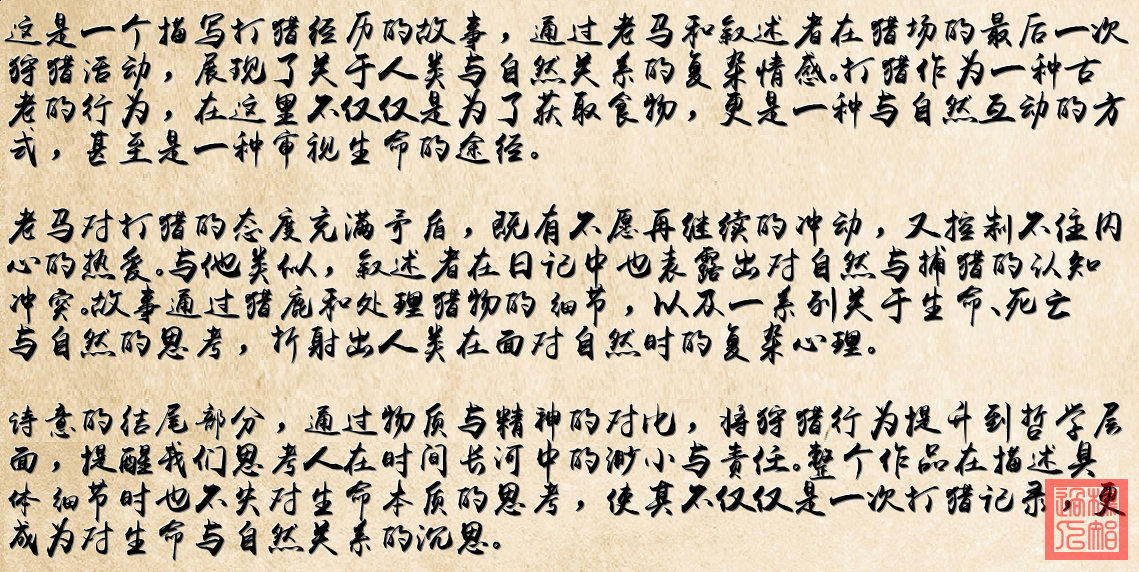 这是一个描写打猎经历的故事，通过老马和叙述者在猎场的最后一次
狩猎活动，展现了关于人类与自然关系的复杂情感。打猎作为一种古
老的行为，在这里不仅仅是为了获取食物，更是一种与自然互动的方
式，甚至是一种审视生命的途径。
老马对打猎的态度充满矛盾，既有不愿再继续的冲动，又控制不住内
心的热爱。与他类似，叙述者在日记中也表露出对自然与捕猎的认知
冲突。故事通过猎鹿和处理猎物的细节，以及一系列关于生命、死亡
与自然的思考，折射出人类在面对自然时的复杂心理。
诗意的结尾部分，通过物质与精神的对比，将狩猎行为提升到哲学层
面，提醒我们思考人在时间长河中的渺小与责任。整个作品在描述具
体细节时也不失对生命本质的思考，使其不仅仅是一次打猎记录，更
成为对生命与自然关系的沉思。